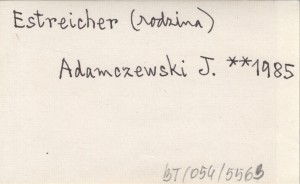 Estreicher (rodzina)
Adamczewski J. **1985
BT/054/5563